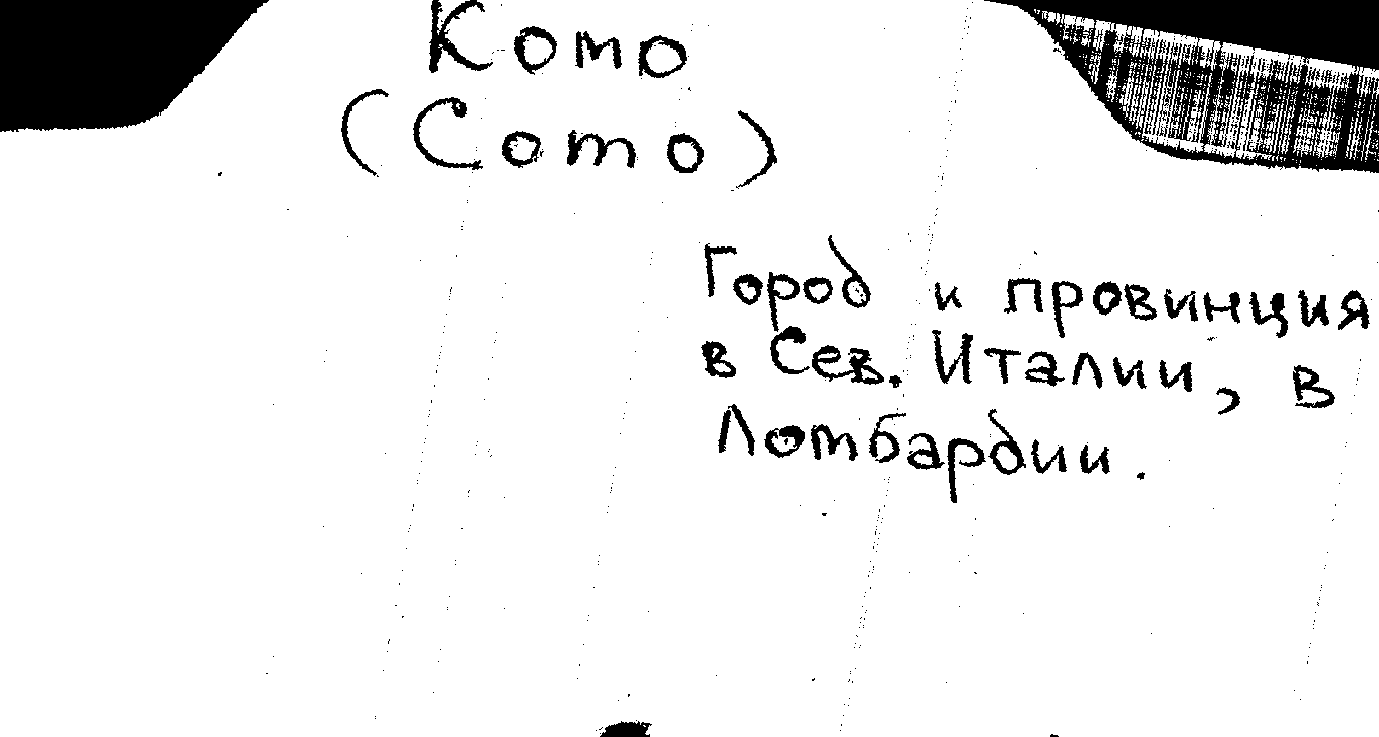 Комо
(Como)
Город и провинция
в Сев. Италии, в
Ломбардии.